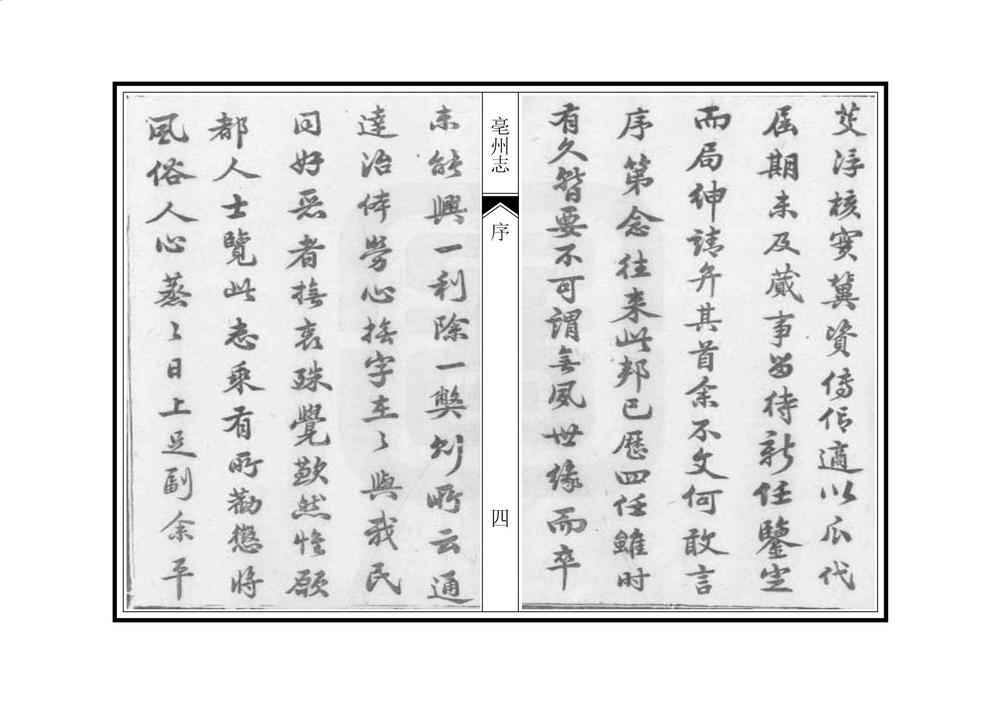 芟浮核實冀資傳信適以瓜代
屆期未及蕆事留待新任鑒定
而局紳請弁其首余不文何敢言
序第念往來此邦已歷四任雖时
有久暫要不可謂無夙世緣而卒
亳州志
序
四
未能興一利除一弊則所云通
達治体勞心撫字在々與我民
同好惡者撫衷殊覺歉然惟願
都人士覽此志乘有所勸懲將
風俗人心蒸々日上足副余平